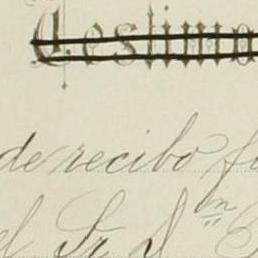 Testimo
de recibo fo
el Sr. D.n